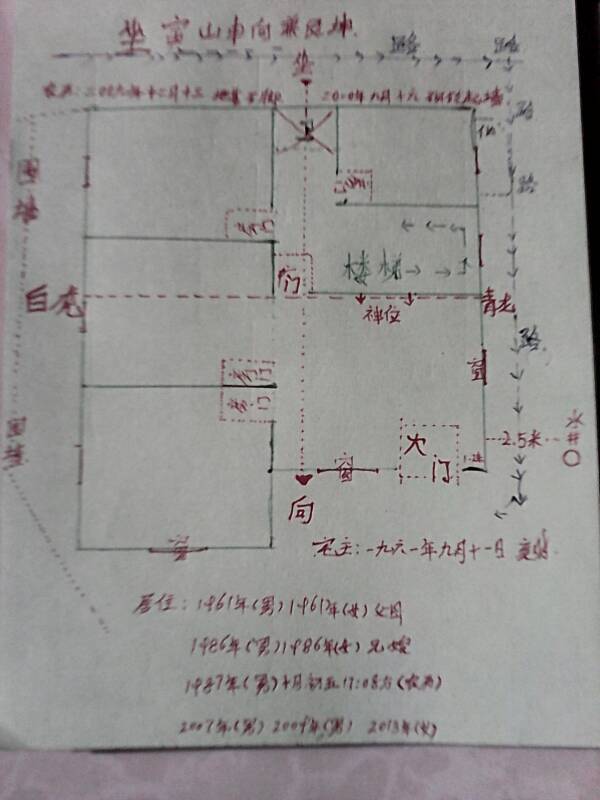 坐寅山申向兼艮坤
路 路
坐
农历:二00九年十二月十三 2010年九月十六
围墙
路
房门
路
房门
后门
楼梯
白虎
青龙
神位
路
窗
房门
房门
大门
水井
2.5米
围墙
窗
向
窗
宅主:一九六一年九月十一日
居住:1961年(男)1961年(女)父母
1986年(男)1986年(女)兄嫂
1987年(男)十月初五17:08分(农历)
2007年(男) 2009年(男) 2013年(女)